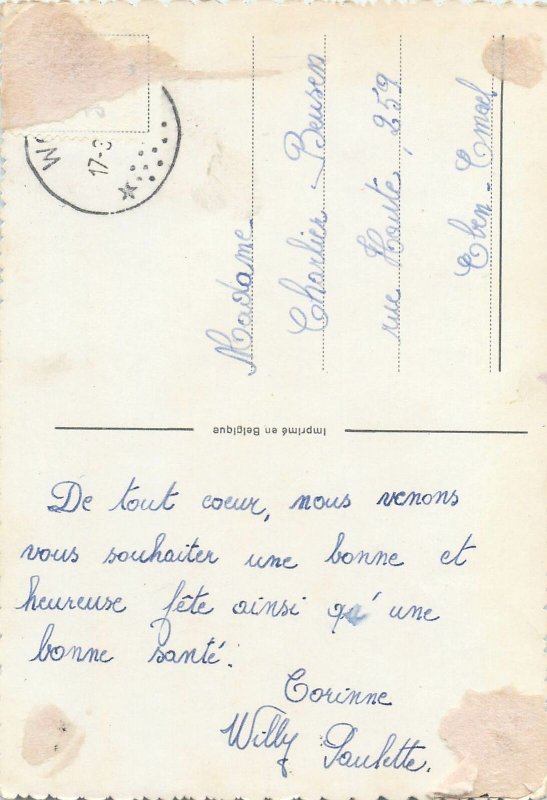 Madame
Charlier - Beusen
rue Haute, 259
Eben-Emael
17-
Imprimé en Belgique
De tout coeur, nous venons
vous souhaiter une bonne et
heureuse fête ainsi qu'une
bonne santé.
Corinne
Willy Paulette.